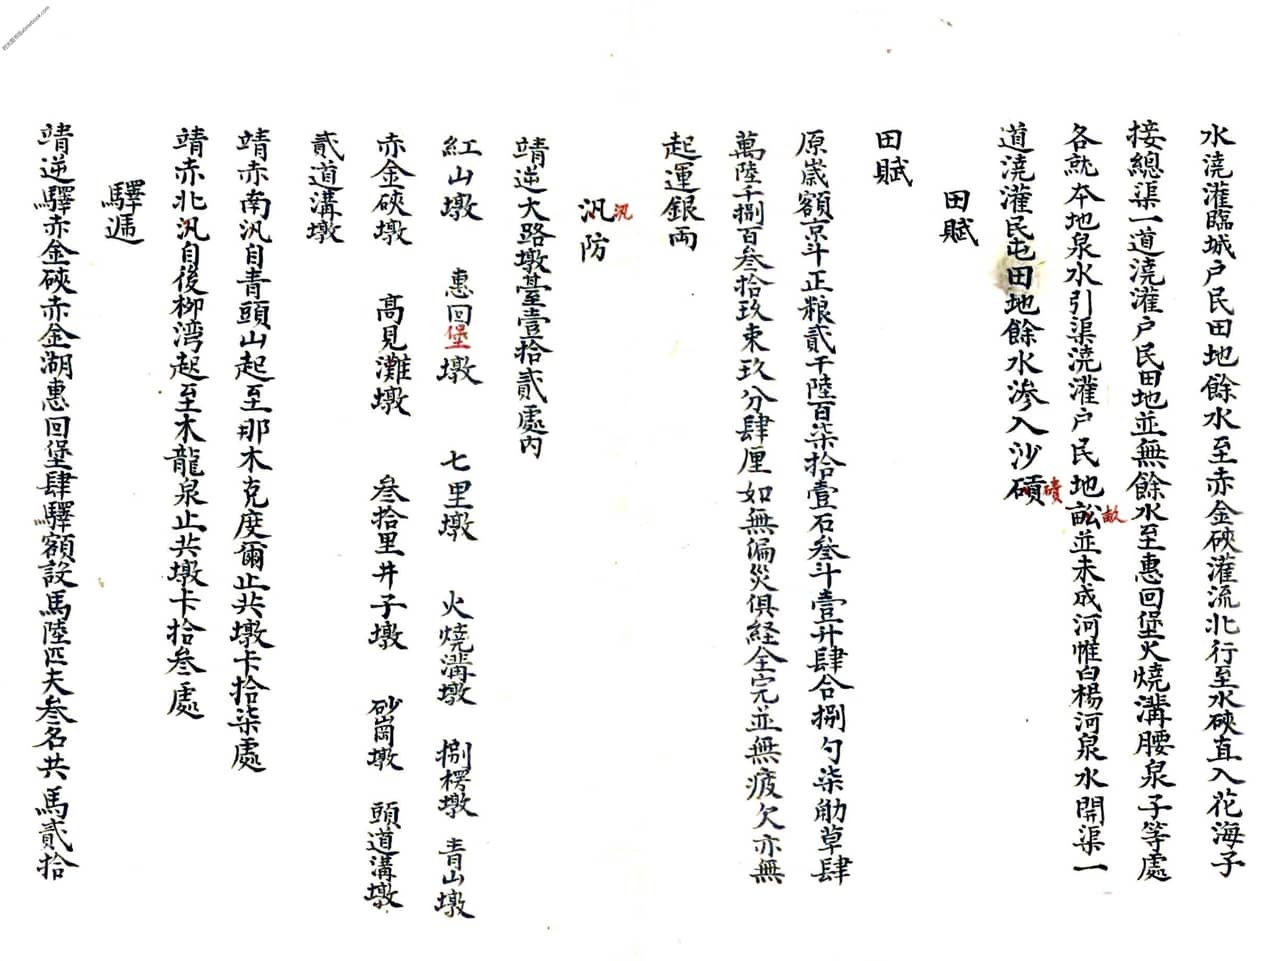 水澆灌臨城户民田地餘水至赤金硤灌流北行至水硤直入花海子
接總渠一道澆灌户民田地並無餘水至惠回堡火燒溝腰泉子等處
各就本地泉水引渠澆灌户民地畝並未成河惟白楊河泉水開渠一
畝
道澆灌民屯田地餘水滲入沙磧
磧
田賦
田賦
原嵗額京斗正粮貳千陸百柒拾壹石叄斗壹升肆合捌勺柒觔草肆
萬陸千捌百叄拾玖束玖分肆厘如無偏災俱経全完並無疲欠亦無
起運銀両
汎防
汛
靖逆大路墩臺壹拾貳處内
紅山墩 惠回堡墩 七里墩 火燒溝墩 捌楞墩 青山墩
赤金硤墩 高見灘墩 叄拾里井子墩 砂崗墩 頭道溝墩
貳道溝墩
靖赤南汎自青頭山起至那木克度爾止共墩卡拾柒處
靖赤北汎自後柳湾起至木龍泉止共墩卡拾叄處
驛逓
靖逆驛赤金硤赤金湖惠回堡肆驛額設馬陸匹夫叄名共馬貳拾